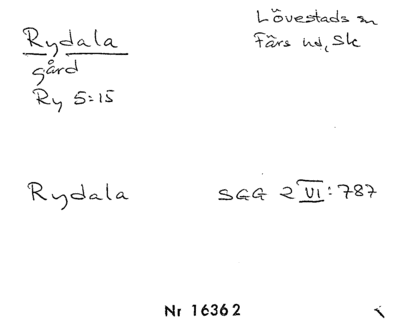 Rydala
gård
Ry 5:15
Lövestads sn
Färs hd, Sk
Rydala
SGG 2 VI: 787
Nr 16362